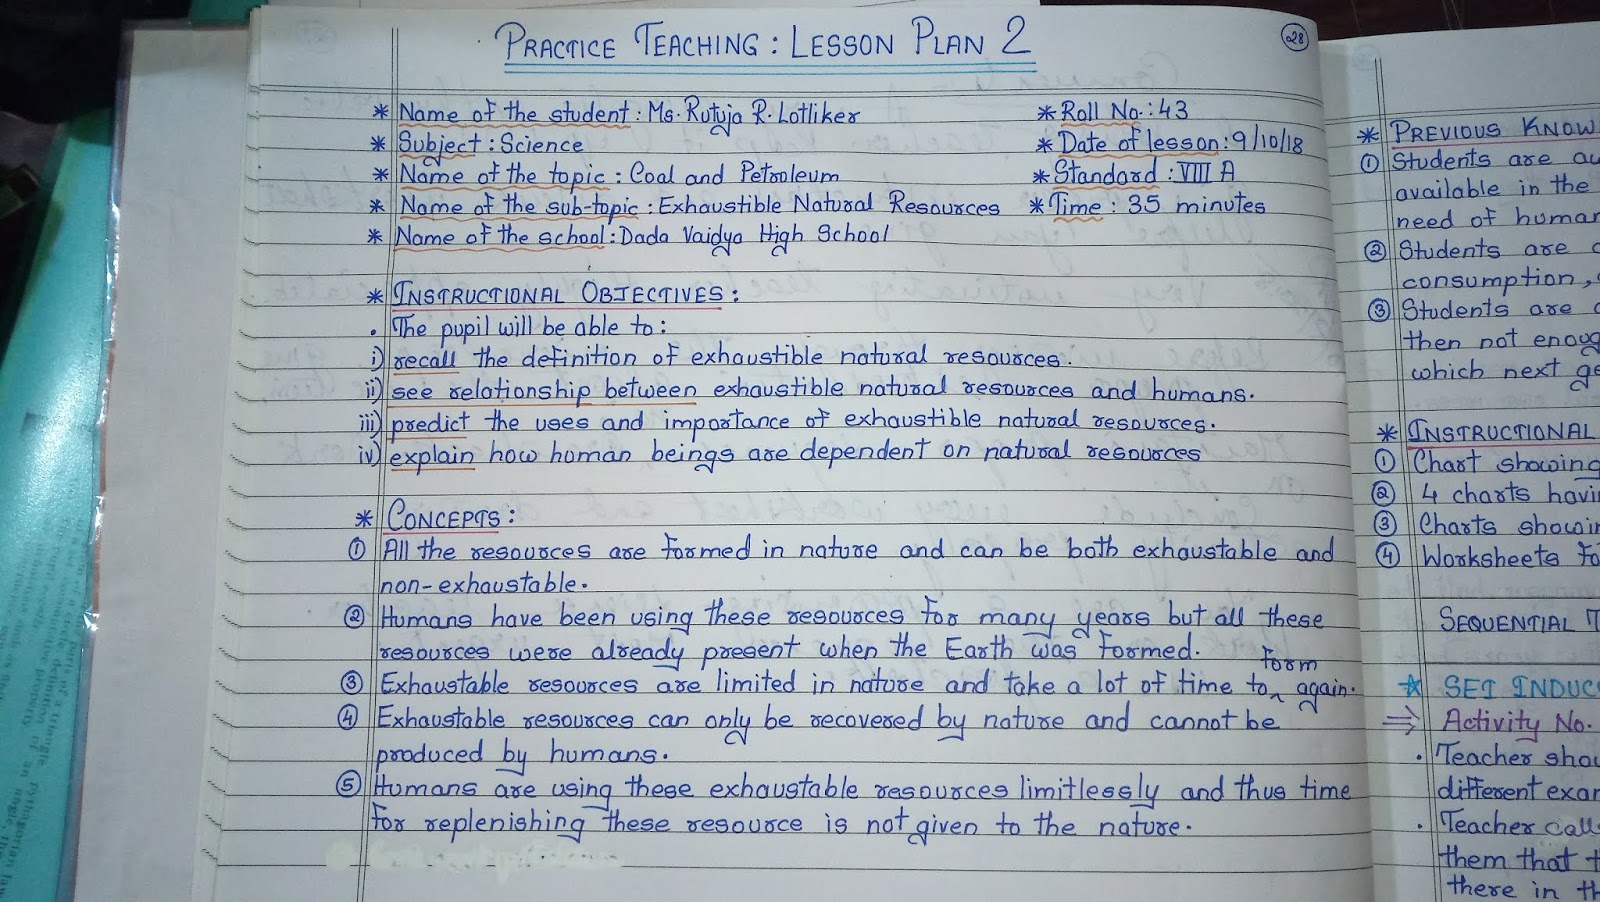 PRACTICE TEACHING : LESSON PLAN 2
28
* Name of the student : Ms. Rutuja R. Lotliker
* Roll No. : 43
* Subject : Science
* Date of lesson : 9/10/18
* Name of the topic : Coal and Petroleum
* Standard : VIII A
* Name of the sub-topic : Exhaustible Natural Resources
* Time : 35 minutes
* Name of the school : Dada Vaidya High School
* INSTRUCTIONAL OBJECTIVES :
. The pupil will be able to :
i) recall the definition of exhaustible natural resources.
ii) see relationship between exhaustible natural resources and humans.
iii) predict the uses and importance of exhaustible natural resources.
iv) explain how human beings are dependent on natural resources
* CONCEPTS :
① All the resources are formed in nature and can be both exhaustable and
non-exhaustable.
② Humans have been using these resources for many years but all these
resources were already present when the Earth was formed.
③ Exhaustable resources are limited in nature and take a lot of time to form again.
④ Exhaustable resources can only be recovered by nature and cannot be
produced by humans.
⑤ Humans are using these exhaustable resources limitlessly and thus time
for replenishing these resource is not given to the nature.
* PREVIOUS KNOW
① Students are
available in the
need of human
② Students are
consumption,
③ Students are
then not enoug
which next ge
* INSTRUCTIONAL
① Chart showing
② 4 charts havi
③ Charts showin
④ Worksheets fo
SEQUENTIAL T
SET INDUC
⇒ Activity No.
. Teacher sho
different exam
. Teacher call
them that t
there in th